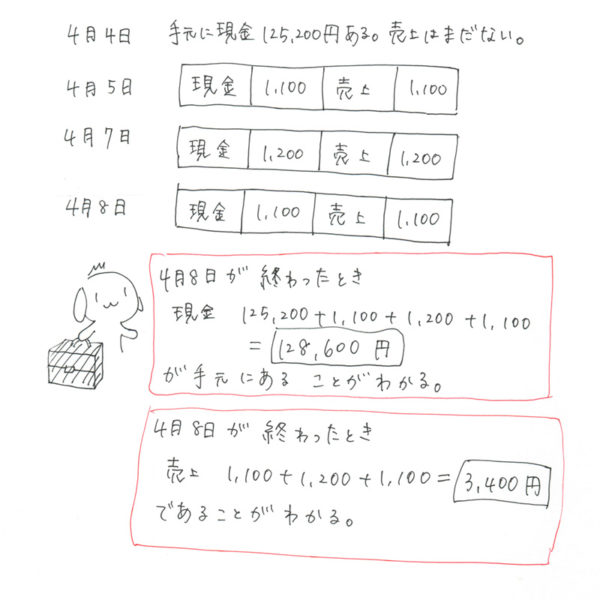 4月4日 手元に現金125,200円ある。売上はまだない。
4月5日 現金 1,100 売上 1,100
4月7日 現金 1,200 売上 1,200
4月8日 現金 1,100 売上 1,100
4月8日が終わったとき
現金 125,200+1,100+1,200+1,100
=128,600円
が手元にあることがわかる。
4月8日が終わったとき
売上 1,100+1,200+1,100=3,400円
であることがわかる。